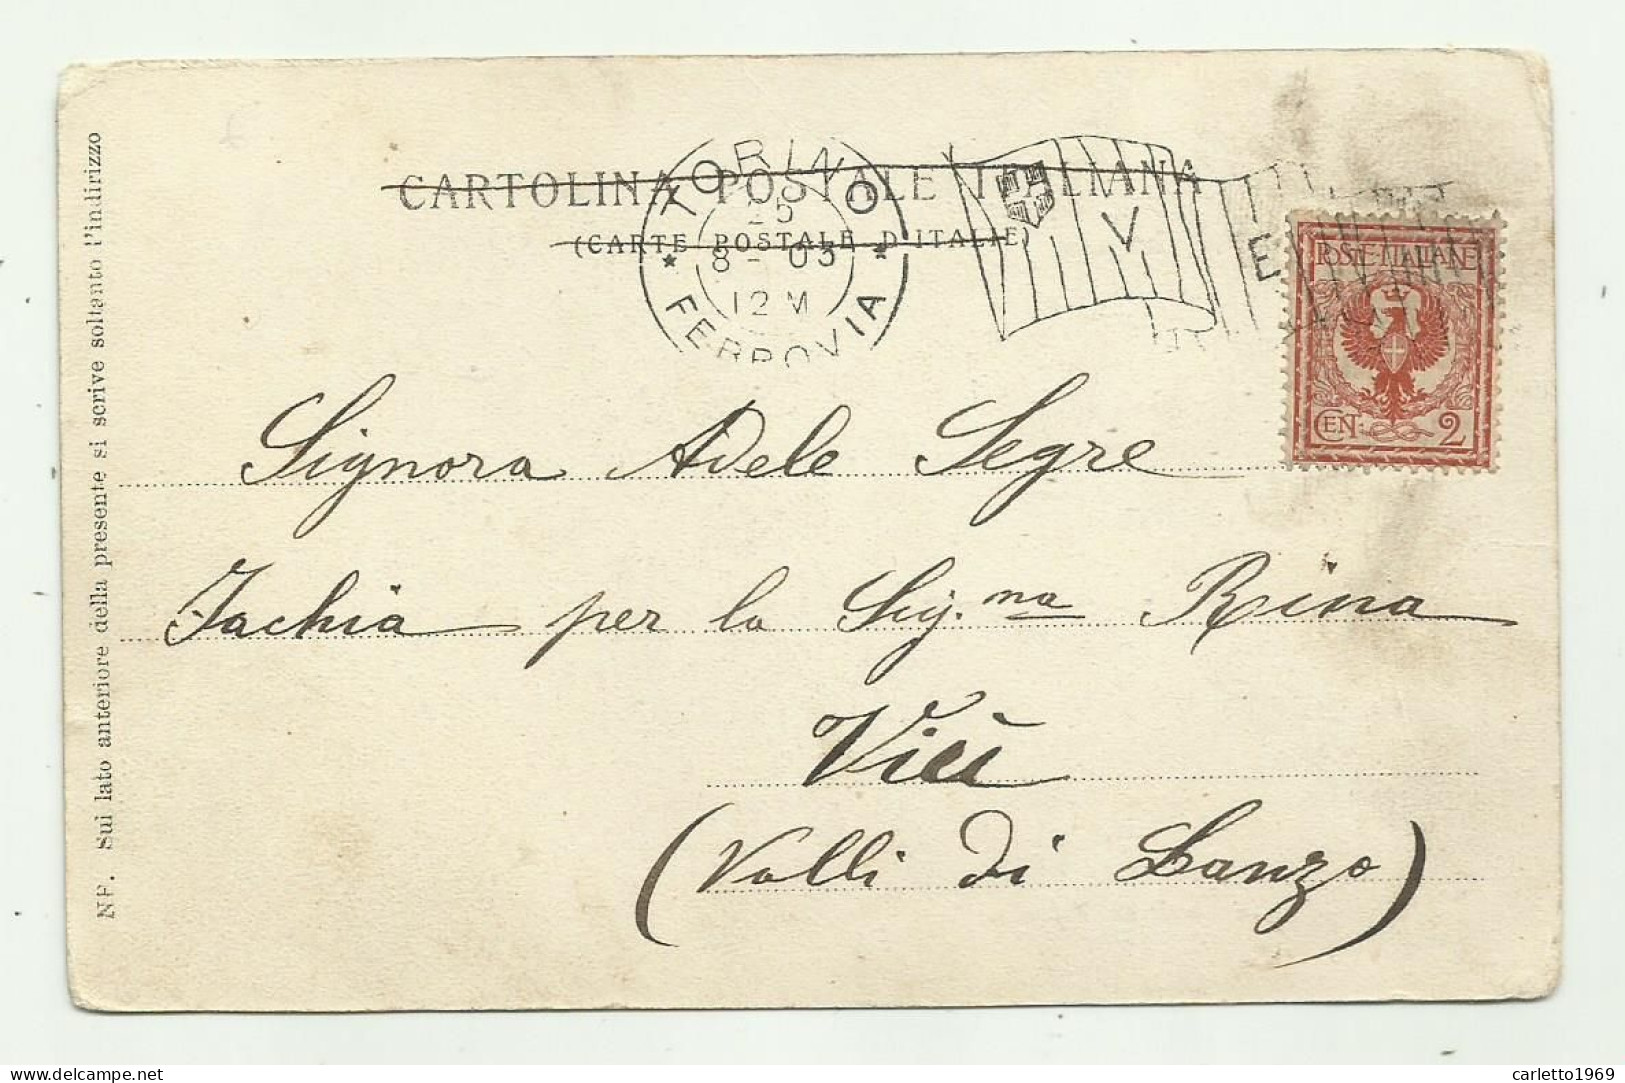 CARTOLINA POSTALE ITALIANA
(CARTE POSTALE D'ITALIE)
TORINO
25
8 - 03
12 M
* FERROVIA *
V
E
POSTE ITALIANE
CEN. 2
Signora Adele Segre
Jachia per la Sig.na Rina
Viù
(Valli di Lanzo)
NF. Sul lato anteriore della presente si scrive soltanto l'indirizzo
carletto1969